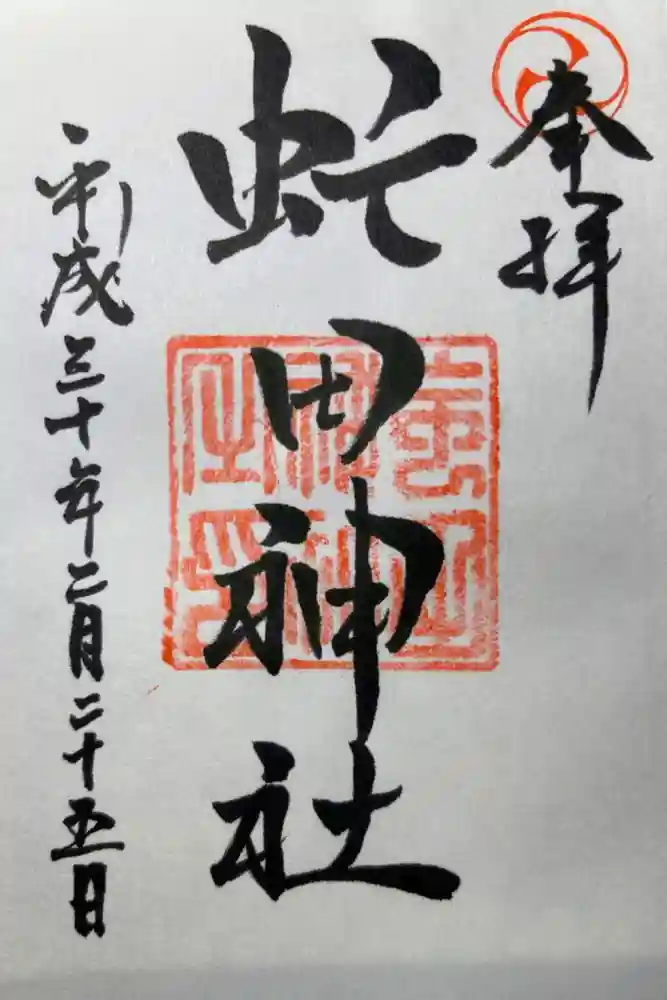 奉拝
虻田神社
平成三十年二月二十五日